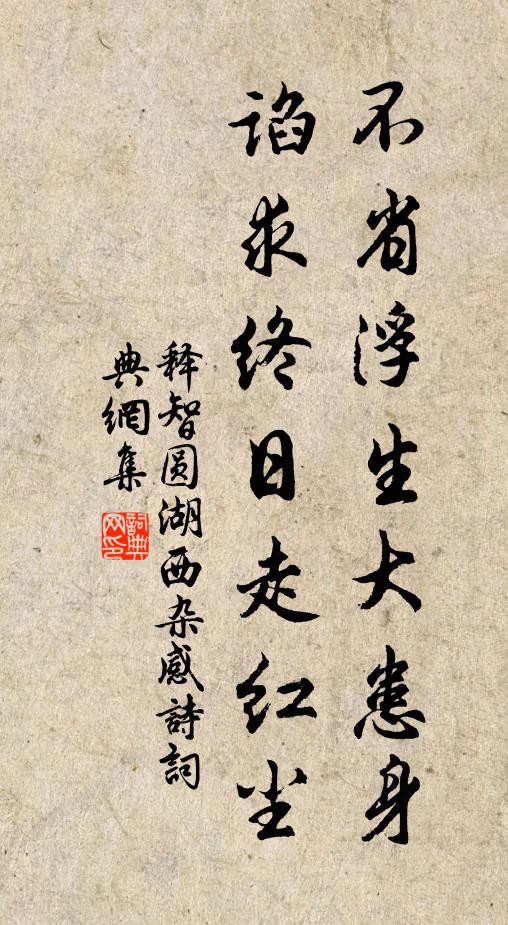 不省浮生大患身
谄求终日走红尘
释智圆湖西杂感詩詞
典網集
詞典
网印